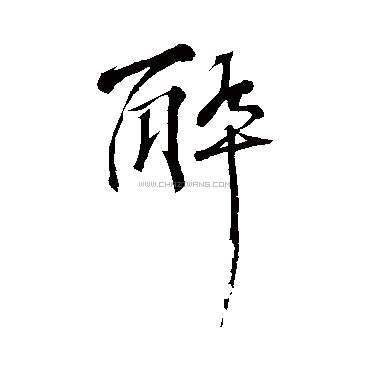 醉
WWW.CHAZIWANG.COM